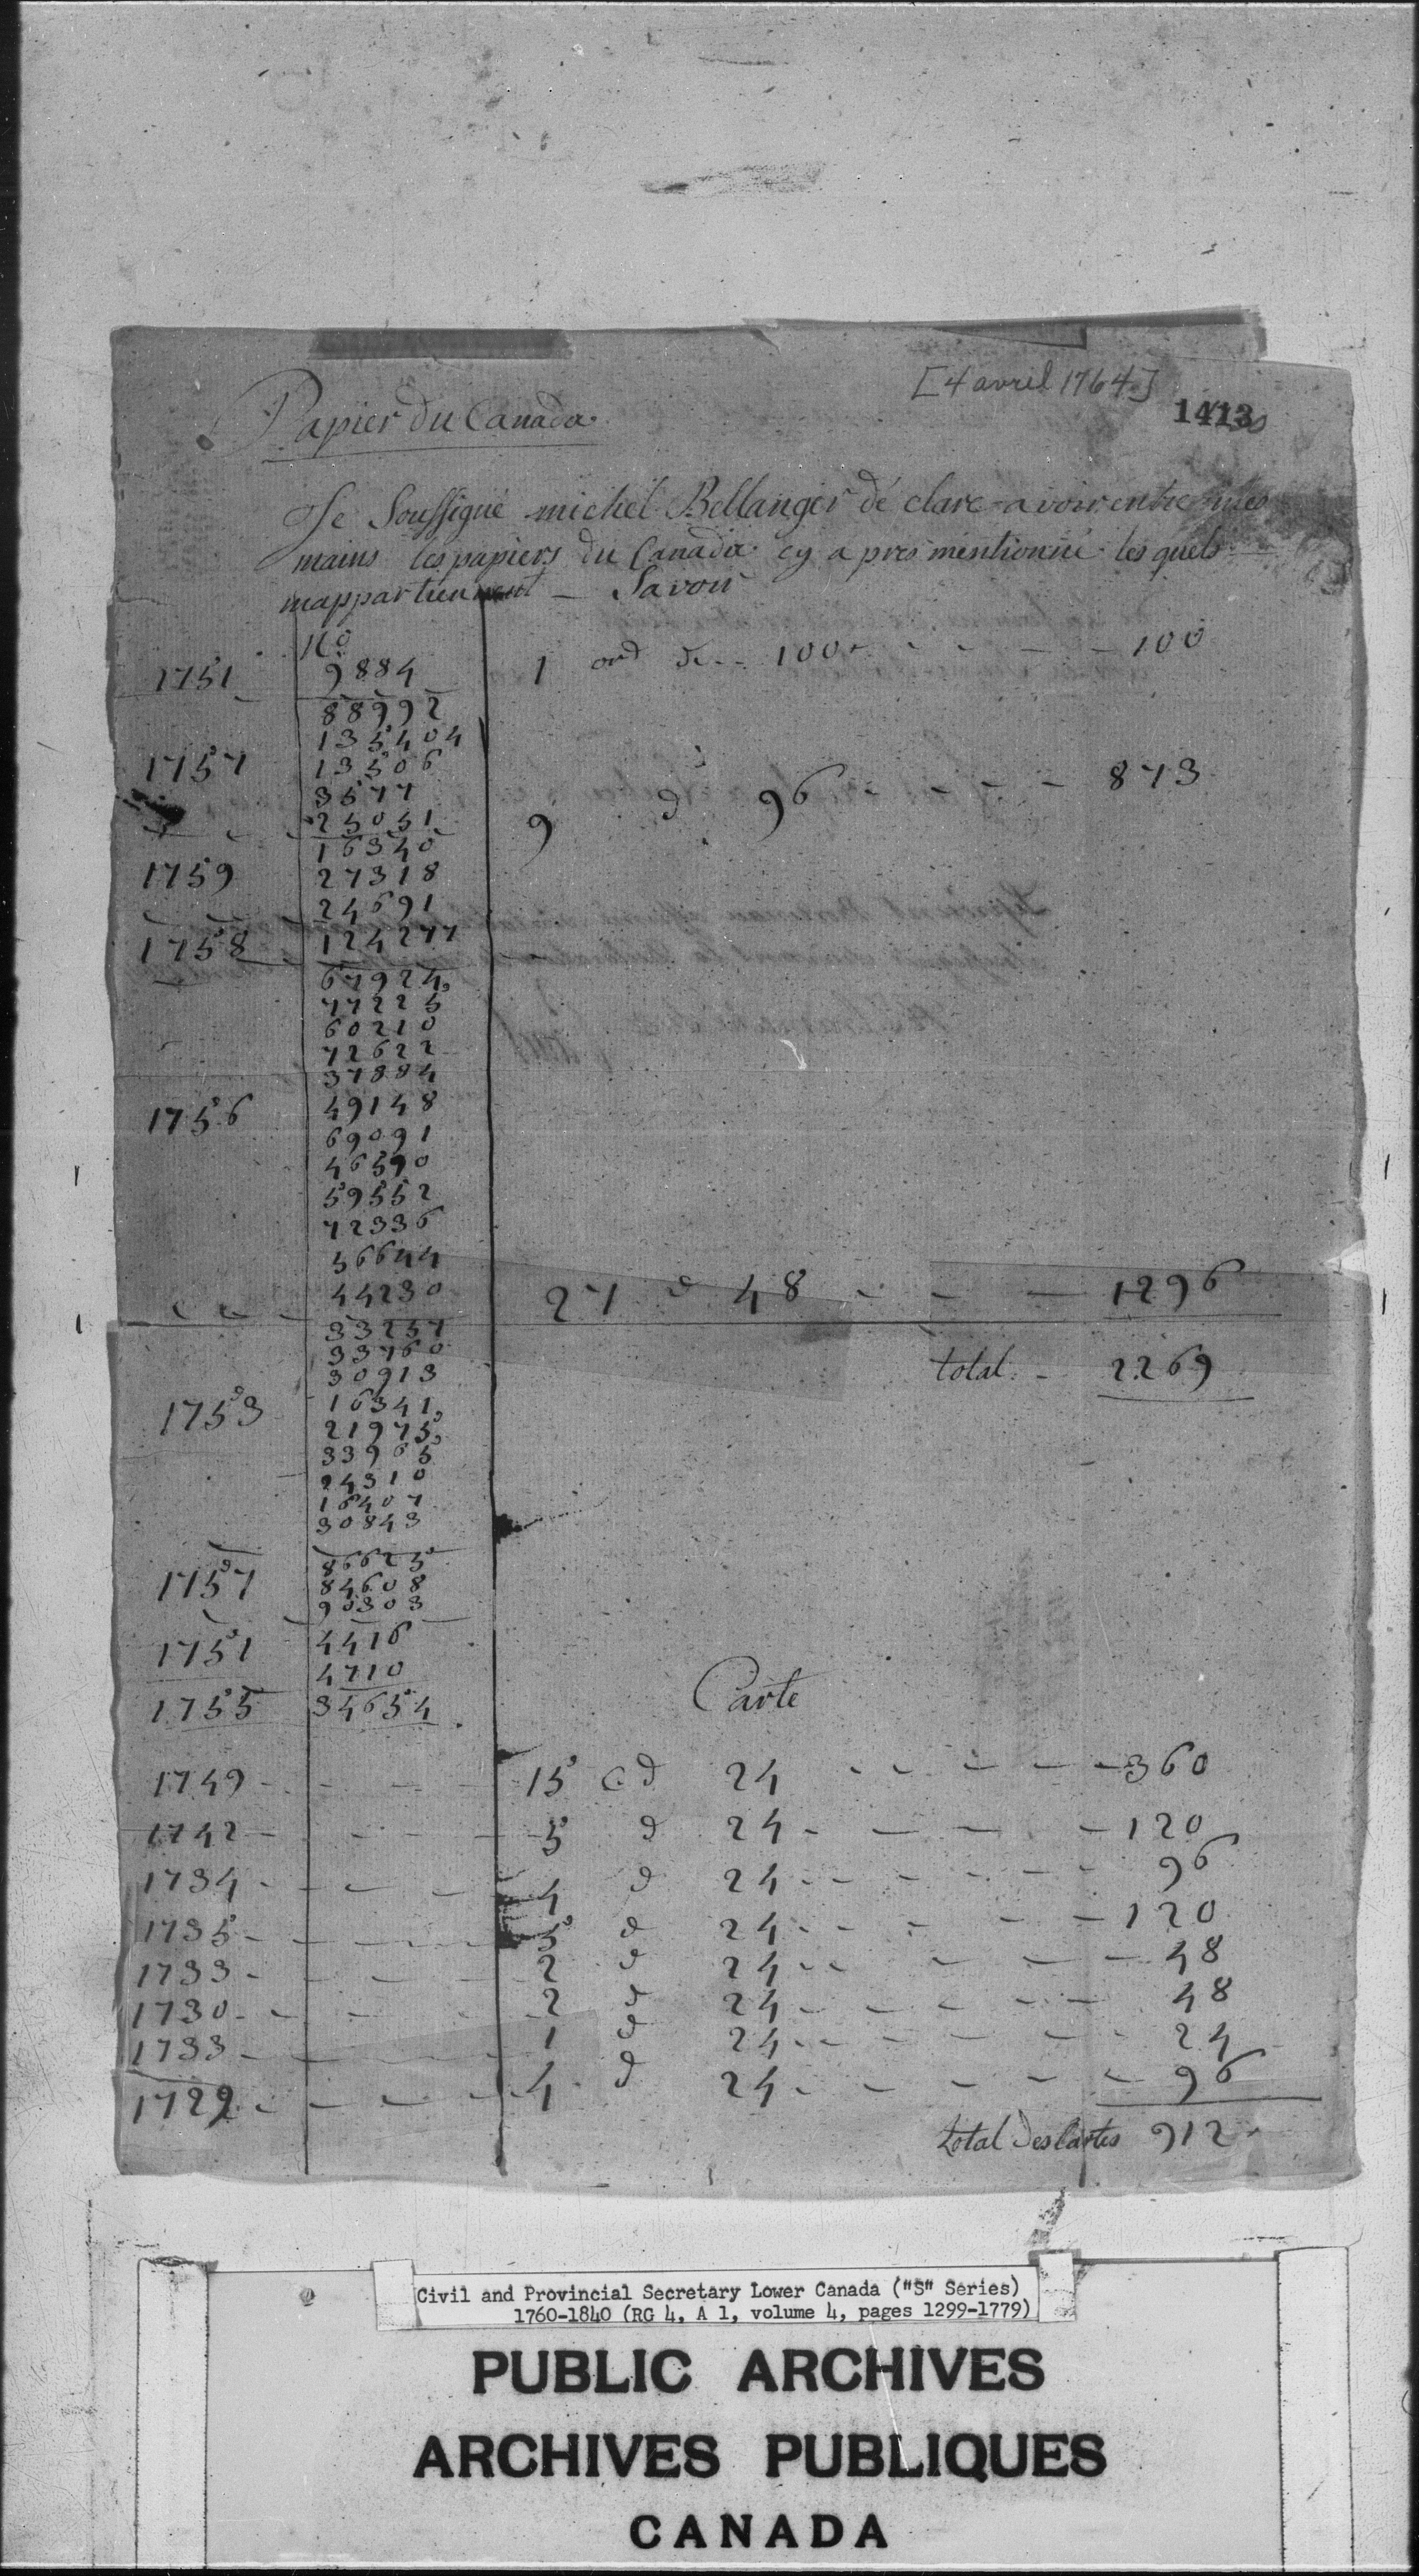 [4 avril 1764]
1413
Papier du Canada
Je Soussigné michel Bellanger dé clare avoir entre mes
mains les papiers du Canada cy a pres mentionné les quels
mappartiennent — Savoir
No
1751 9884 1 ord de 100 - - - - 100
88992
135404
1757 13506
3577
25051 9 d 96 - - - - 873
16340
1759 27318
24691
1758 124277
67924
77225
60210
72622
37884
1756 49148
69091
46590
59552
72336
56644
44230 27 d 48 - - - 1296
33257
33760 total - 2269
30913
1753 16341
21975
33965
24310
16407
30843
86625
1757 84608
90303
1751 4416
4710
1755 34654
Carte
1749 - - - - 15 c d 24 - - - - - 360
1742 - - - - 5 d 24 - - - - 120
1734 - - - - 4 d 24 - - - - - 96
1735 - - - - 5 d 24 - - - - - 120
1733 - - - - 2 d 24 - - - - - 48
1730 - - - - 2 d 24 - - - - - 48
1733 - - - - 1 d 24 - - - - - 24
1729 - - - - 4 d 24 - - - - - 96
total des Cartes 912
Civil and Provincial Secretary Lower Canada ("S" Series)
1760-1840 (RG 4, A 1, volume 4, pages 1299-1779)
PUBLIC ARCHIVES
ARCHIVES PUBLIQUES
CANADA